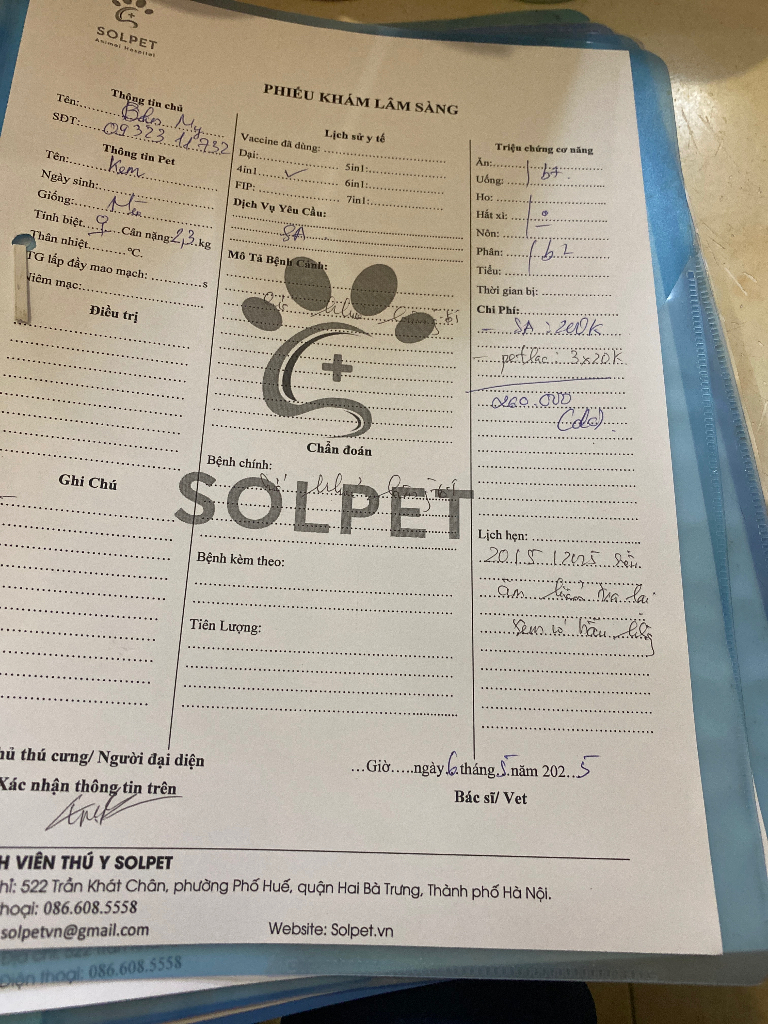 SOLPET
Animal Hospital
PHIẾU KHÁM LÂM SÀNG
Thông tin chủ
Tên: My
SĐT: 0932311732
Thông tin Pet
Tên: Kem
Ngày sinh:
Giống: Mèo
Tính biệt: ♀ Cân nặng: 2,3 kg
Thân nhiệt °C.
TG lấp đầy mao mạch: s
Niêm mạc:
Điều trị
Ghi Chú
Lịch sử y tế
Vaccine đã dùng:
Dại: 5in1:
4in1 ✓ 6in1:
FIP: 7in1:
Dịch Vụ Yêu Cầu:
SA
Mô Tả Bệnh Cảnh:
Chẩn đoán
Bệnh chính:
SOLPET
Bệnh kèm theo:
Tiên Lượng:
Triệu chứng cơ năng
Ăn:
Uống: bt
Ho:
Hắt xì:
Nôn:
Phân: bt
Tiểu:
Thời gian bị:
Chi Phí:
- SA: 200K
- petlac: 3x20K
260.000
Lịch hẹn:
20/5/2025
âm kiểm tra lại
xem có
hủ thú cưng/ Người đại diện
Xác nhận thông tin trên
...Giờ.....ngày 6 tháng 5 năm 2025
Bác sĩ/ Vet
H VIÊN THÚ Y SOLPET
hỉ: 522 Trần Khát Chân, phường Phố Huế, quận Hai Bà Trưng, Thành phố Hà Nội.
hoại: 086.608.5558
solpetvn@gmail.com Website: Solpet.vn
Điện thoại: 086.608.5558